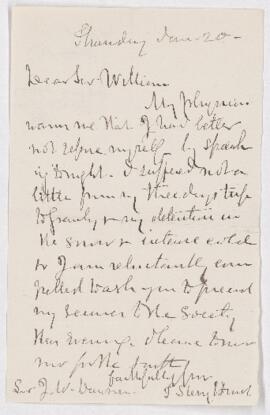 Thursday Jan-20-
Dear Sir William
My physician
warns me that I had better
not expose myself by speak
ing tonight. I suffered not a
little from my three days trip
to & my detention in
the snow & intense cold
so I am reluctantly com
pelled to ask you to present
my excuses to the Society
this evening. Please to
me for the
faithfully yrs
Sir J. W. Dawson T Sterry Hunt